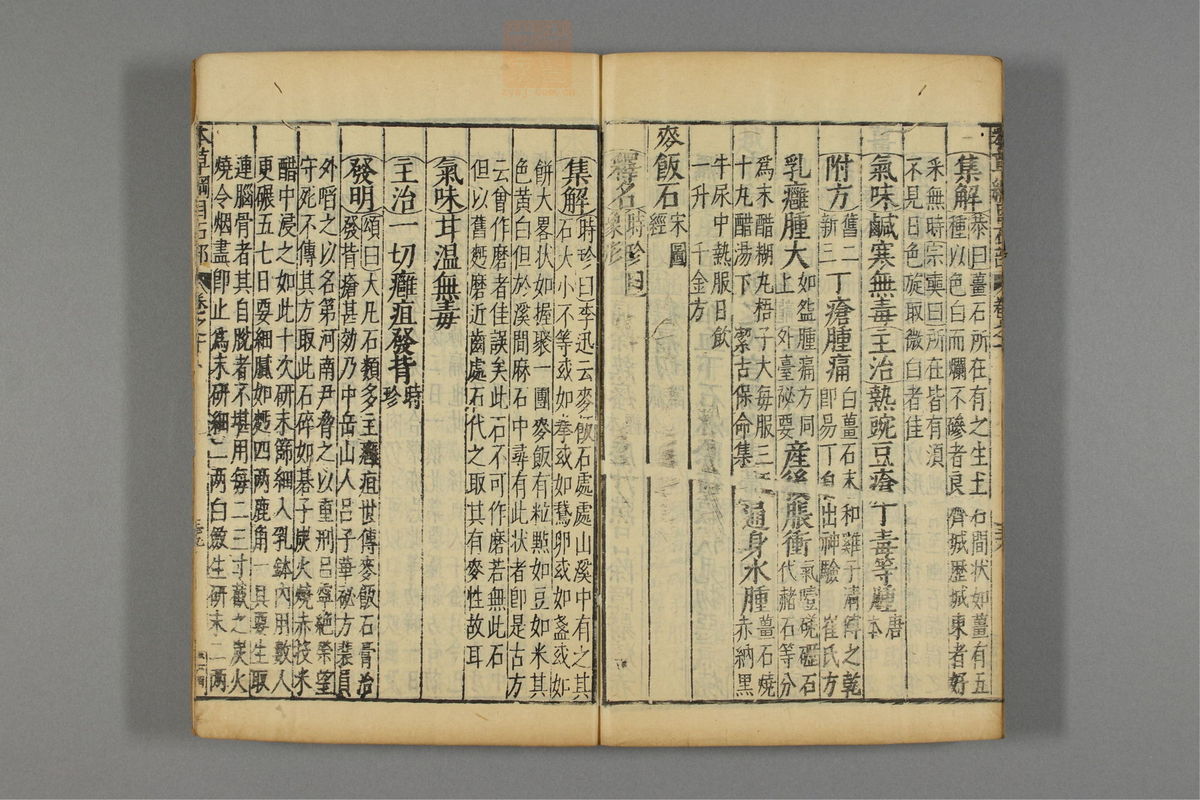 集解恭曰薑石所在有之生土石間狀如薑有五
種以色白而爛不磣者良齊城歷城東者好
采無時宗奭曰所在皆有須
不見日色旋取微白者佳
氣味鹹寒無毒主治熱豌豆瘡丁毒等腫唐本
附方舊二新三丁瘡腫痛白薑石末和雞子清傅之乾
即易丁自出神驗崔氏方
乳癰腫大如盌腫痛方同上外臺祕要產後脹衝氣噎礓石
代赭石等分
爲末醋糊丸梧子大每服三
十丸醋湯下潔古保命集通身水腫薑石燒
赤納黑
牛尿中熱服日飲
一升千金方
麥飯石宋圖經
釋名時珍曰象形
集解時珍曰李迅云麥飯石處處山溪中有之其
石大小不等或如拳或如鵞卵或如盞或如
餅大畧狀如握聚一團麥飯有粒點如豆如米其
色黃白但於溪間麻石中尋有此狀者卽是古方
云曾作磨者佳誤矣此石不可作磨若無此石
但以舊麪磨近齒處石代之取其有麥性故耳
氣味甘温無毒
主治一切癰疽發背時珍
發明頌曰大凡石類多主癰疽世傳麥飯石膏治
發背瘡甚効乃中岳山人呂子華祕方裴員
外啗之以名第河南尹脅之以重刑呂寧絶榮望
守死不傳其方取此石碎如棊子炭火燒赤投米
醋中浸之如此十次研末篩細入乳鉢內用數人
更碾五七日要細膩如麪四兩鹿角一具要生取
連腦骨者其自脫者不堪用每二三寸截之炭火
燒令烟盡卽止爲末研細二兩白斂生研末二兩
本草綱目石部
卷之十